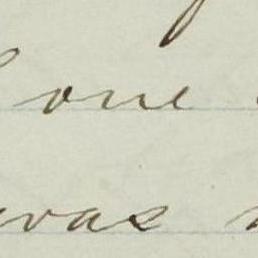 one
was